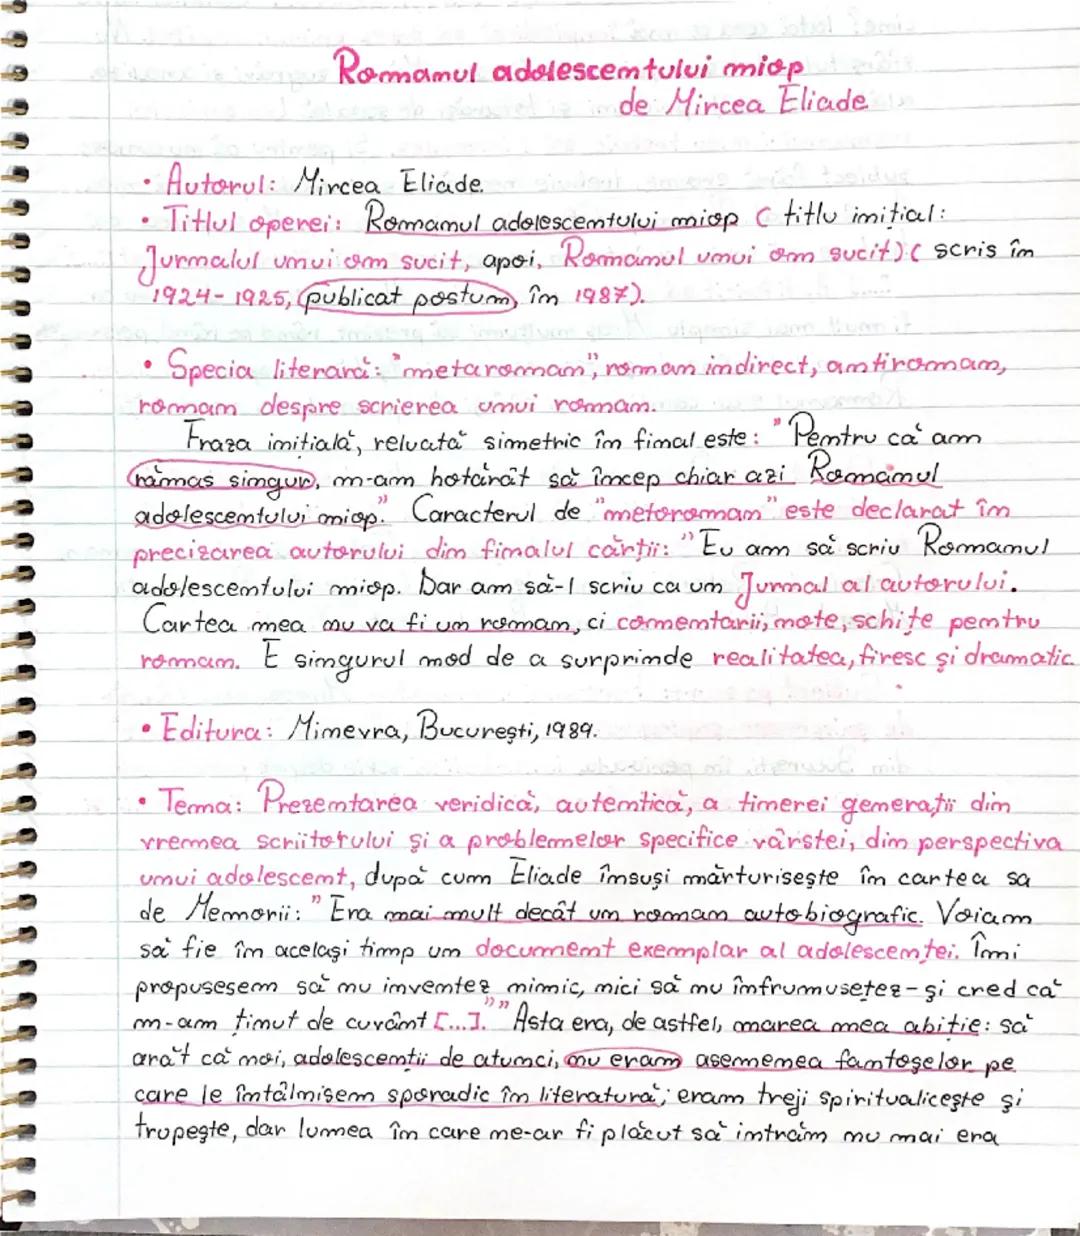 Romanul adolescentului miop
de Mircea Eliade
• Autorul: Mircea Eliade.
• Titlul operei: Romanul adolescentului miop ( titlu inițial:
Jurnalul unui om sucit, apoi, Romanul unui om sucit) ( scris în
1924-1925, publicat postum, în 1987).
• Specia literară: "metaroman", roman indirect, antiroman,
roman despre scrierea unui roman.
Fraza inițială, reluată simetric în final este: "Pentru că am
rămas singur, m-am hotărât să încep chiar azi Romanul
adolescentului miop." Caracterul de "metaroman" este declarat în
precizarea autorului din finalul cărții: "Eu am să scriu Romanul
adolescentului miop. Dar am să-l scriu ca un Jurnal al autorului.
Cartea mea nu va fi un roman, ci comentarii, note, schițe pentru
roman. E singurul mod de a surprinde realitatea, firesc și dramatic.
• Editura: Minevra, București, 1989.
• Tema: Prezentarea veridică, autentică, a tinerei generații din
vremea scriitorului și a problemelor specifice vârstei, din perspectiva
unui adolescent, după cum Eliade însuși mărturisește în cartea sa
de Memorii: "Era mai mult decât un roman autobiografic. Voiam
să fie în același timp un document exemplar al adolescenței. Îmi
propusesem să nu inventez nimic, nici să nu înfrumusețez - și cred că
m-am ținut de cuvânt [...]." "Asta era, de astfel, marea mea abiție: să
arăt că noi, adolescenții de atunci, nu eram asemenea fantoșelor pe
care le întâlnisem sporadic în literatură; eram treji spiritualicește și
trupește, dar lumea în care ne-ar fi plăcut să intrăm nu mai era